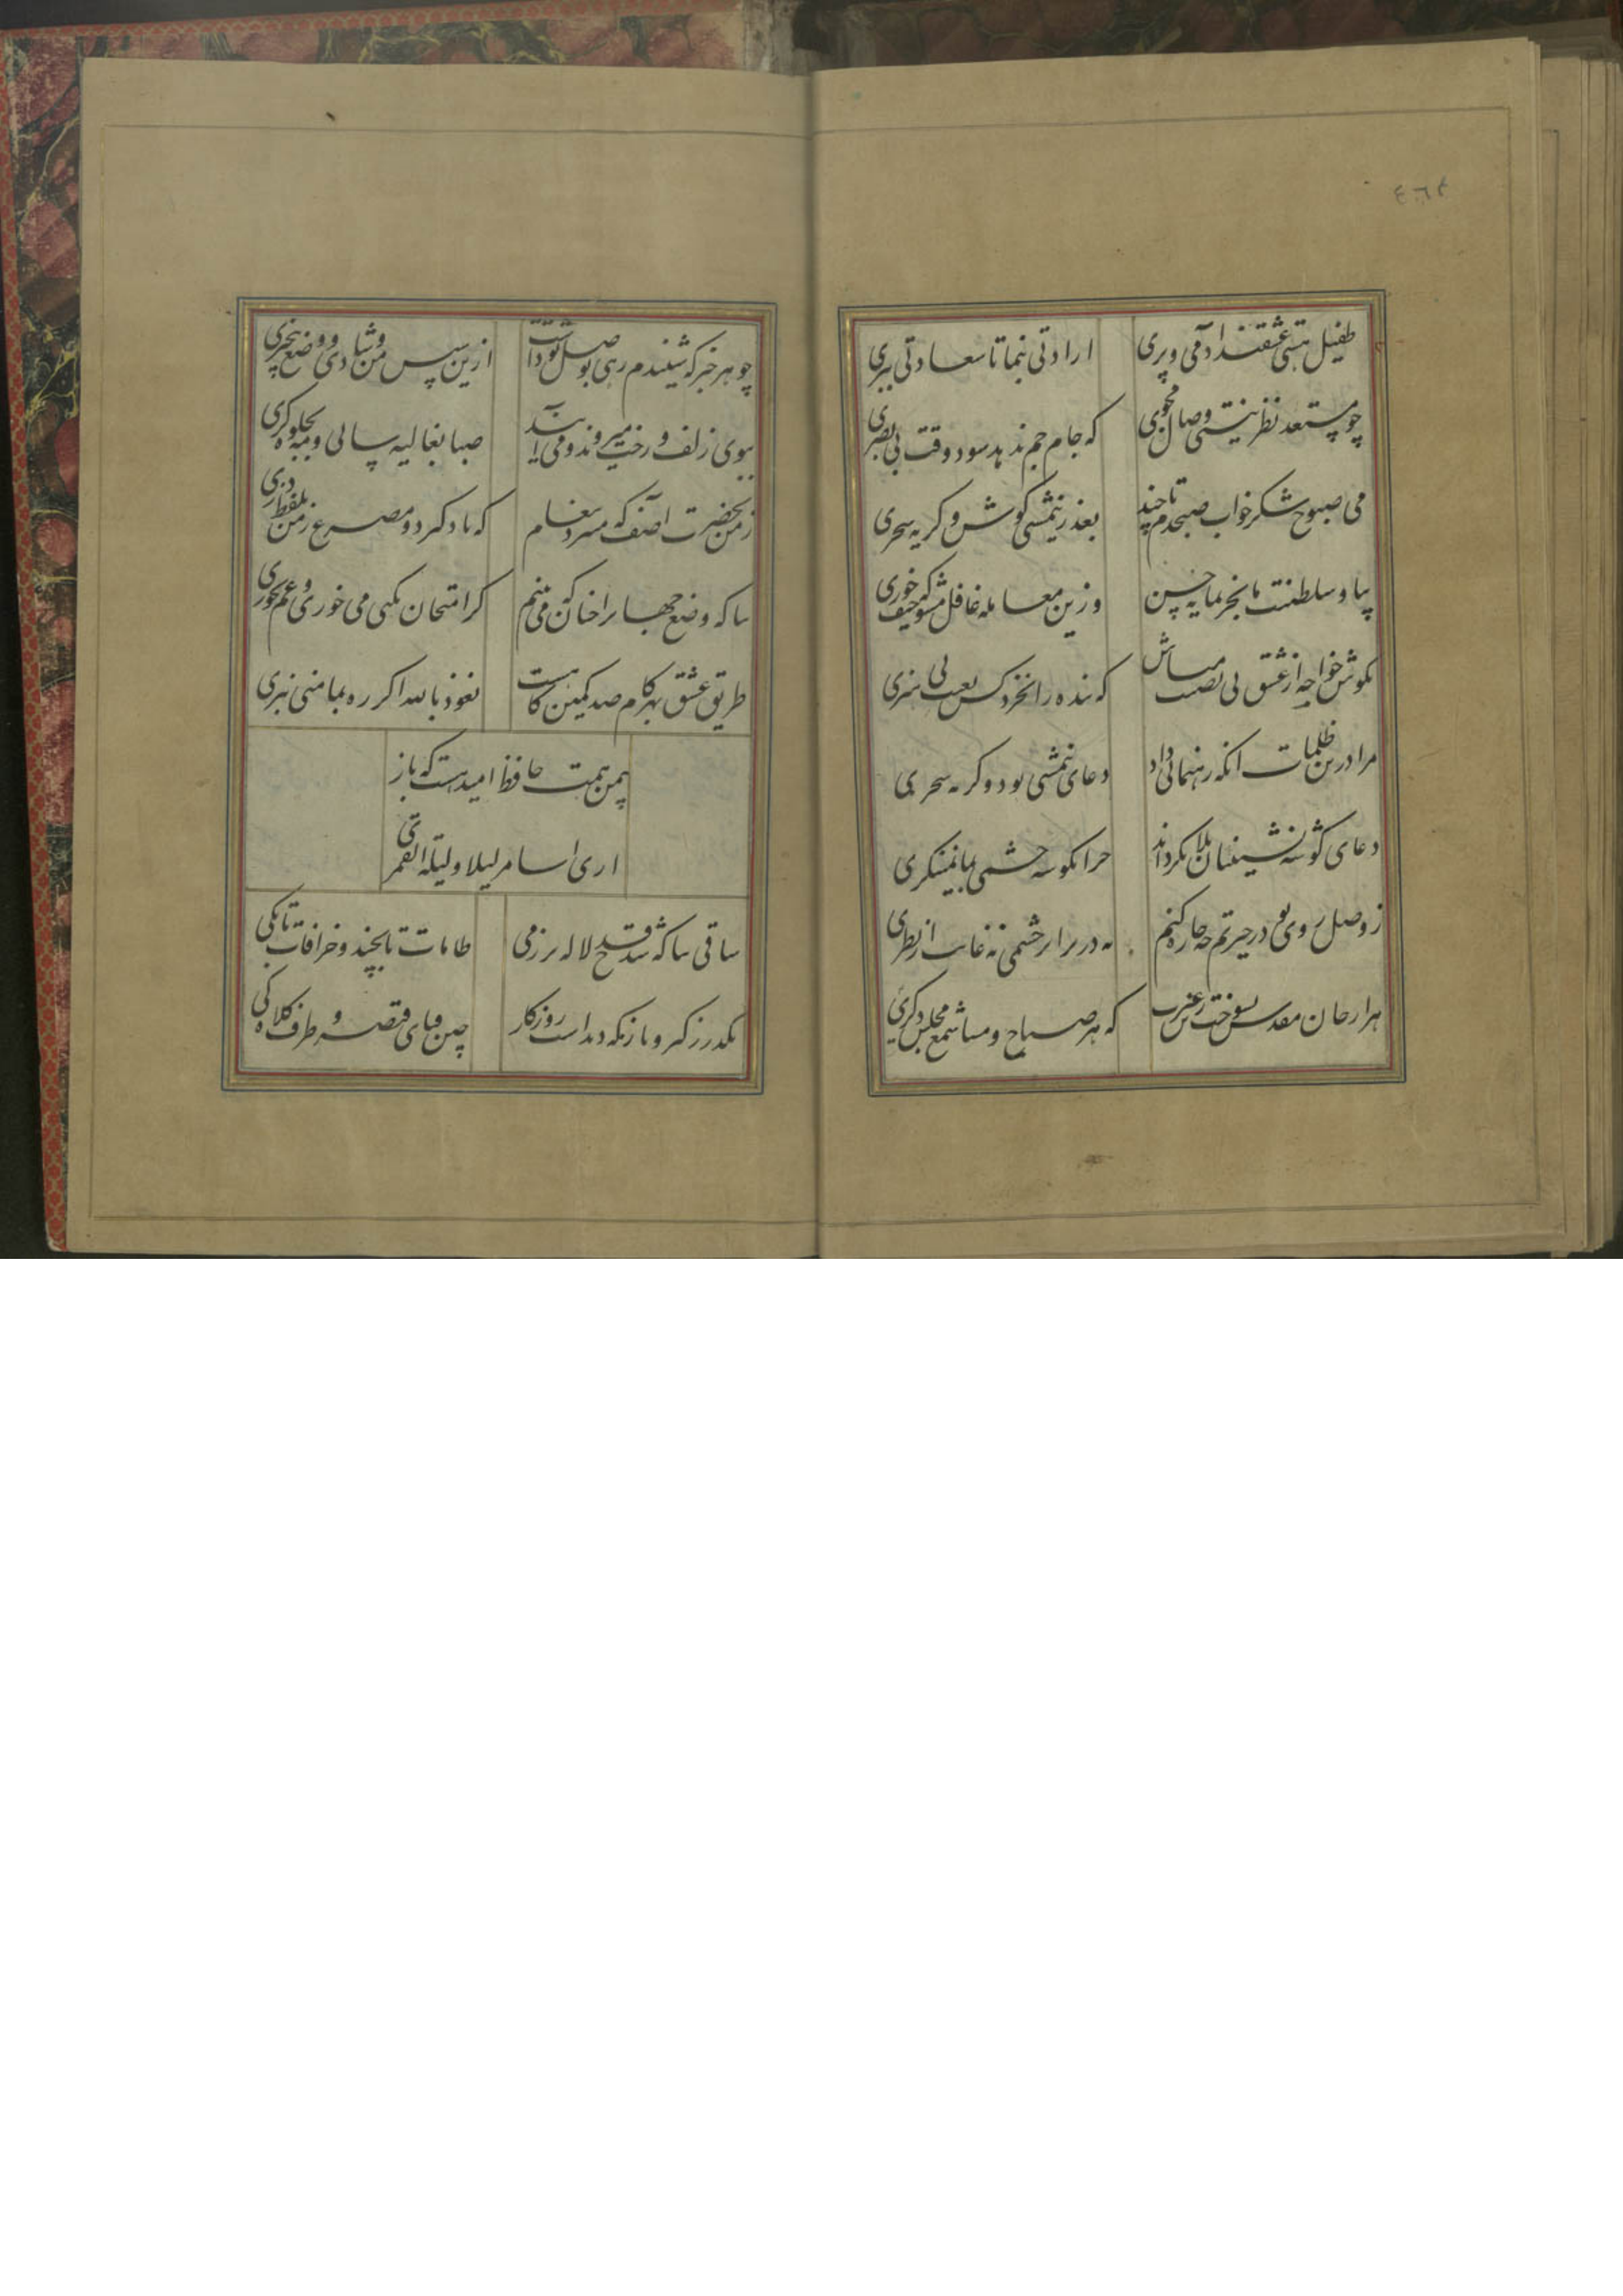 ٤٦٤
طفیل هستی عشقند آدمی و پری ارادتی بنما تا سعادتی ببری
چو مستعد نظر نیستی وصال مجوی که جام جم ندهد سود وقت بی بصری
می صبوح و شکر خواب صبحدم تا چند بعذر نیمشبی کوش و کریه سحری
بیا و سلطنت از ما بخر بمایه حسن وزین معامله غافل مشو که حیف خوری
بکوش خواجه و از عشق بی نصیب مباش که بنده را نخرد کس بعیب بی هنری
مرا درین ظلمات آنکه رهنمائی داد دعای نیمشبی بود و کریه سحری
دعای کوشه نشینان بلا بکرداند چرا بکوشه چشمی بما نمینکری
ز وصل روی تو در حیرتم چه چاره کنم نه در برابر چشمی نه غایب از نظری
هزار جان مقدس بسوخت زین غیرت که هر صباح و مسا شمع مجلس دکری
چو هر خبر که شنیدم رهی بوصل تو داشت ازین سپس من و شادی و وضع بیخبری
ببوی زلف و رخت میروند و می آیند صبا بغالیه سائی و مه بجلوه کری
ز من بحضرت آصف که میبرد پیغام که یاد کیرد دو مصرع ز من بلفظ دری
بیا که وضع جهانرا چنانکه می بینم کر امتحان بکنی می خوری و غم نخوری
طریق عشق بهر کام صد کمین کاهست نعوذ بالله اکر ره بمامنی نبری
بیمن همت حافظ امید هست که باز
اری اسامر لیلای لیلة القمری
ساقی بیا که شد قدح لاله پر ز می طامات تا بچند و خرافات تا بکی
بکذر ز کبر و ناز که دیداست روزکار چین قبای قیصر و طرف کلاه کی